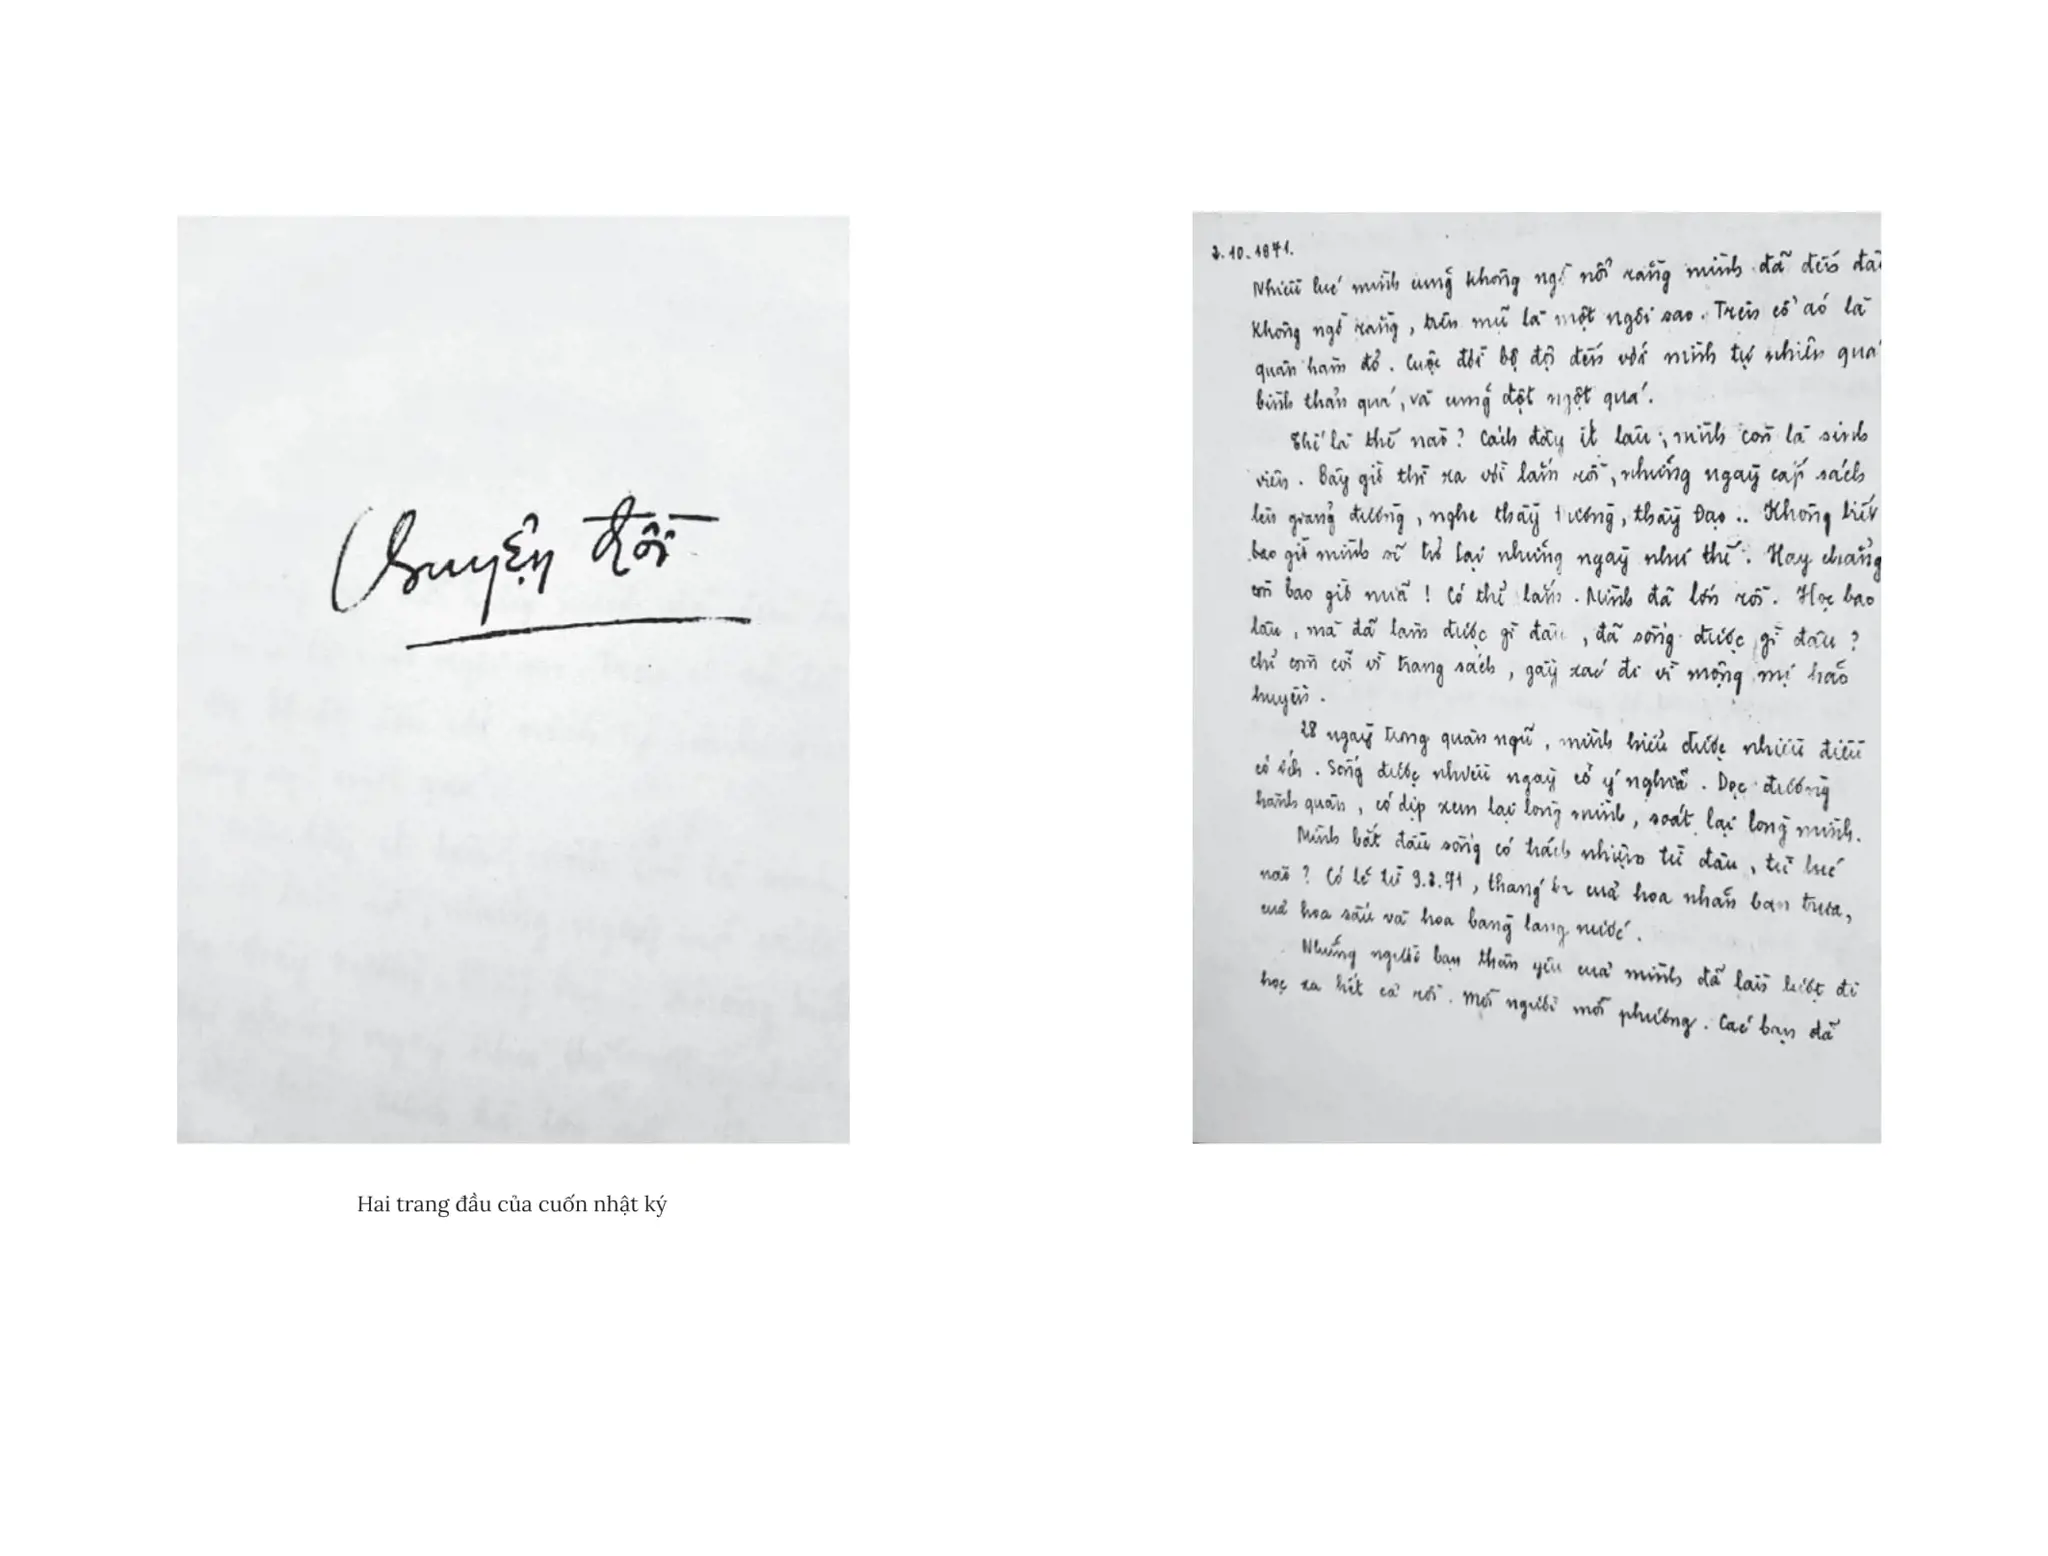 Chuyện đời
Hai trang đầu của cuốn nhật ký
2.10.1971.
Nhiều lúc mình cũng không ngờ nổi rằng mình đã đến đây
Không ngờ rằng, trên mũ là một ngôi sao. Trên cổ áo là
quân hàm đỏ. Cuộc đời bộ đội đến với mình tự nhiên quá
bình thản quá, và cũng đột ngột quá.
Thế là thế nào? Cách đây ít lâu, mình còn là sinh
viên. Bây giờ thì xa vời lắm rồi, những ngày cắp sách
lên giảng đường, nghe thầy Đường, thầy Đạo.. Không biết
bao giờ mình sẽ trở lại những ngày như thế. Hay chẳng
còn bao giờ nữa! Có thể lắm. Mình đã lớn rồi. Học bao
lâu, mà đã làm được gì đâu, đã sống được gì đâu?
chỉ còm cõi vì trang sách, gầy xác đi vì mộng mị hão
huyền.
28 ngày trong quân ngũ, mình hiểu được nhiều điều
có ích. Sống được nhiều ngày có ý nghĩa. Dọc đường
hành quân, có dịp xem lại lòng mình, soát lại lòng mình.
Mình bắt đầu sống có trách nhiệm từ đâu, từ lúc
nào? Có lẽ từ 9.3.71, tháng ba của hoa nhãn ban trưa,
của hoa sấu và hoa bằng lăng nước.
Những người bạn thân yêu của mình đã lần lượt đi
học xa hết cả rồi. Mỗi người mỗi phương. Các bạn đã